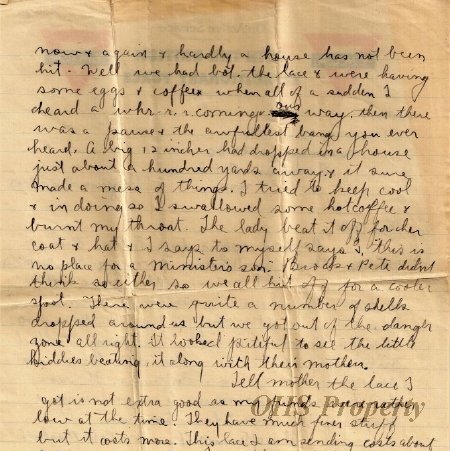 now & again & hardly a house has not been
hit. Well we had bot. the lace & were having
some eggs & coffee when all of a sudden I
heard a whr.r.r. coming our way, then there
was a pause & the awfullest bang you ever
heard. A big 12 incher had dropped in a house
just about a hundred yards away & it sure
made a mess of things. I tried to keep cool
& in doing so I swallowed some hot coffee &
burnt my throat. The lady beat it off for her
coat & hat & I says to myself says I, this is
no place for a Minister's son. Brooks & Pete didn't
think so either so we all hit off for a cooler
spot. There were quite a number of shells
dropped around us but we got out of the danger
zone all right. It looked pitiful to see the little
kiddies beating it along with their mothers.
Tell mother the lace I
got is not extra good as my funds were rather
low at the time. They have much finer stuff
but it costs more. This lace I am sending costs about
OHS Property